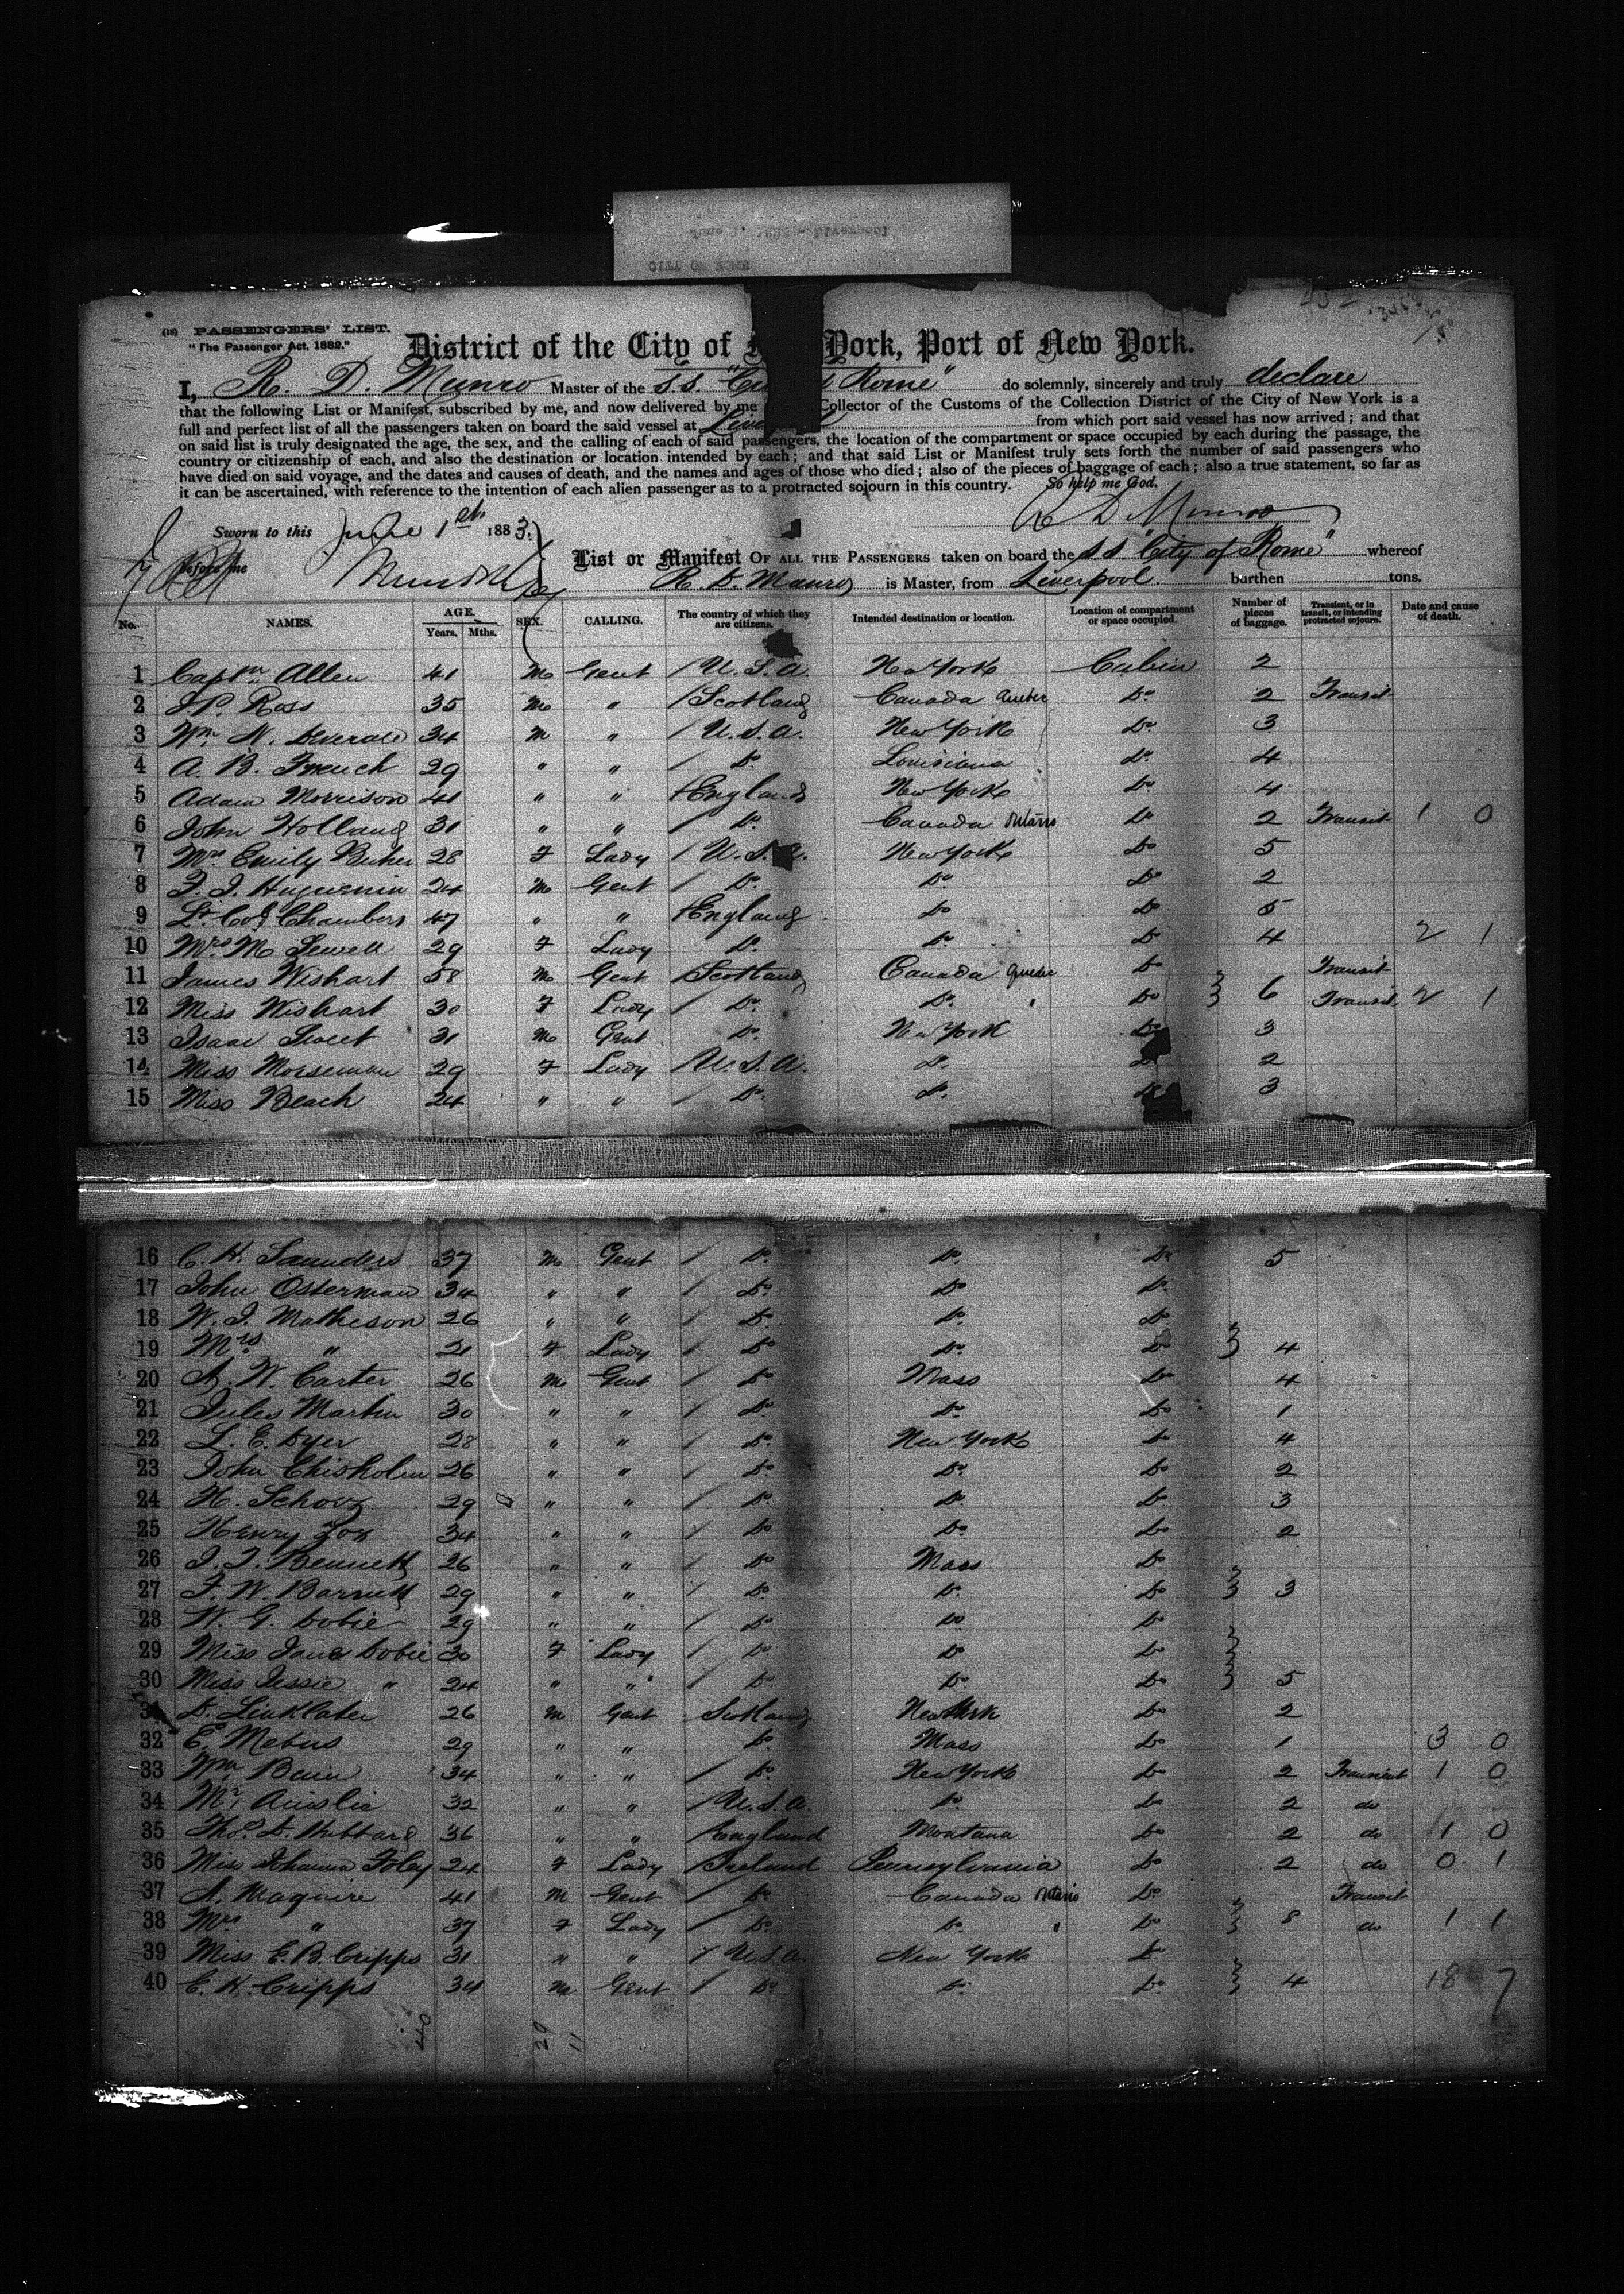 June 1, 1883 - Liverpool
CITY OF ROME
(18) PASSENGERS' LIST.
"The Passenger Act, 1882."
District of the City of York, Port of New York.
I, R. D. Munro Master of the S.S. Rome" do solemnly, sincerely and truly declare
that the following List or Manifest, subscribed by me, and now delivered by me Collector of the Customs of the Collection District of the City of New York is a
full and perfect list of all the passengers taken on board the said vessel at from which port said vessel has now arrived; and that
on said list is truly designated the age, the sex, and the calling of each of said passengers, the location of the compartment or space occupied by each during the passage, the
country or citizenship of each, and also the destination or location intended by each; and that said List or Manifest truly sets forth the number of said passengers who
have died on said voyage, and the dates and causes of death, and the names and ages of those who died; also of the pieces of baggage of each; also a true statement, so far as
it can be ascertained, with reference to the intention of each alien passenger as to a protracted sojourn in this country. So help me God.
R D Munro
Sworn to this June 1st 1883.
before me
List or Manifest OF ALL THE PASSENGERS taken on board the S.S. "City of Rome" whereof
R. D. Munro is Master, from Liverpool burthen tons.
No. NAMES. AGE. Years. Mths. SEX. CALLING. The country of which they are citizens. Intended destination or location. Location of compartment or space occupied. Number of pieces of baggage. Transient, or in transit, or intending protracted sojourn. Date and cause of death.
1 Captn. Allen 41 M Gent U.S.A. New York Cabin 2
2 J.P. Ross 35 M " Scotland Canada Quebec Do. 2 Transit
3 Wm. N. 34 M " U.S.A. New York Do. 3
4 A. B. French 29 " " Do. Louisiana Do. 4
5 Adam Morrison 41 " " England New York Do 4
6 John Holland 31 " " Do. Canada Ontario Do 2 Transit 1 0
7 Mrs Emily 28 F Lady U.S.A. New York Do 5
8 F. J. Huguenin 24 M Gent Do. Do. Do 2
9 Lt. Col Chambers 47 " " England Do Do 5
10 Mrs. M Sewell 29 F Lady Do. Do. Do 4 2 1
11 James Wishart 58 M Gent Scotland Canada Quebec Do Transit
12 Miss Wishart 30 F Lady Do. Do. " Do 6 Transit 2 1
13 Isaac Sweet 31 M Gent Do. New York Do 3
14 Miss Morseman 29 F Lady U.S.A. Do. Do 2
15 Miss Beach 24 " " Do. Do. Do 3
16 C. H. Saunders 37 M Gent Do. Do. Do. 5
17 John Osterman 34 " " Do. Do Do.
18 W. J. Matheson 26 " " Do. Do. Do.
19 Mrs. " 21 F Lady Do Do. Do 4
20 A. W. Carter 26 M Gent Do Mass Do 4
21 Jules Martin 30 " " Do. Do. Do 1
22 L. E. Dyer 28 " " Do. New York Do 4
23 John Chisholm 26 " " Do. Do. Do 2
24 H. 29 " " Do. Do. Do 3
25 Henry Fox 34 " " Do Do. Do 2
26 J. T. Bennett 26 " " Do Mass Do
27 F. W. Barnett 29 " " Do. Do. Do 3
28 W. G. Dobie 29 " " Do Do Do
29 Miss Jane Dobie 30 F Lady Do Do Do
30 Miss Jessie " 24 " " Do Do. Do 5
31 D. Linklater 26 M Gent Scotland New York Do 2
32 E. Mebus 29 " " Do. Mass Do 1 3 0
33 Wm. Bain 34 " " Do. New York Do 2 Transient 1 0
34 Mr. Ainslie 32 " " U.S.A. Do. Do 2 do
35 Thos. D. Hubbard 36 " " England Montana Do 2 do 1 0
36 Miss Johanna Foley 24 F Lady Ireland Pennsylvania Do 2 do 0 1
37 A. Maguire 41 M Gent Do Canada Ontario Do Transit
38 Mrs " 37 F Lady Do. Do. " Do 8 do 1 1
39 Miss E. B. Cripps 31 " " U.S.A. New York Do
40 C. H. Cripps 34 M Gent Do Do. Do. 4 18 7
40 29 11